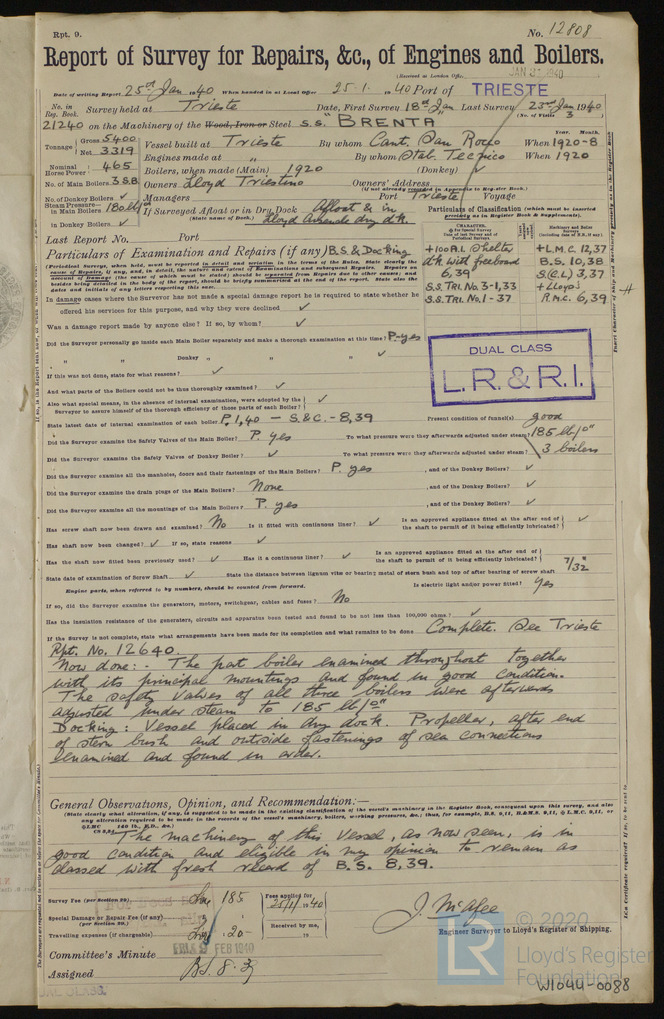 Rpt. 9.
No. 12808
Report of Survey for Repairs, &c., of Engines and Boilers.
(Received at London Office
JAN 31 1940
Date of writing Report 25th Jan 1940 When handed in at Local Office 25.1.1940 Port of TRIESTE
No. in Reg. Book. Survey held at Trieste Date, First Survey 18th Jan Last Survey 23rd Jan 1940
(No. of Visits 3
21240 on the Machinery of the Wood, Iron or Steel S.S. "BRENTA
Tonnage Gross 5400 Net 3319
Vessel built at Trieste By whom Cant. San Rocco When 1920-8
Year. Month.
Engines made at " By whom Stab. Tecnico When 1920
Nominal Horse Power 465
Boilers, when made (Main) 1920 (Donkey) ✓
No. of Main Boilers 3 SB
Owners Lloyd Triestino Owners' Address
(If not already recorded in Appendix to Register Book.)
No. of Donkey Boilers ✓
Managers Port Trieste Voyage
Steam Pressure— in Main Boilers 180 lb
in Donkey Boilers ✓
If Surveyed Afloat or in Dry Dock Afloat & in
(State name of Dock.) Lloyd Arsenale dry dk.
Particulars of Classification (which must be inserted precisely as in Register Book & Supplements).
Last Report No. Port
Particulars of Examination and Repairs (if any) B.S. & Docking
+100A.1. Shelter
dk with freeboard
6,39
S.S. TRI. No. 3-1,33
S.S. TRI. No. 1-37
+L.M.C. 12,37
B.S. 10,38
S.(C.L) 3,37
+Lloyd's
R.M.C. 6,39
In damage cases where the Surveyor has not made a special damage report he is required to state whether he
offered his services for this purpose, and why they were declined ✓
Was a damage report made by anyone else? If so, by whom? ✓
Did the Surveyor personally go inside each Main Boiler separately and make a thorough examination at this time? P-yes
" " Donkey " " " ✓
DUAL CLASS
L.R. & R.I.
If this was not done, state for what reasons? ✓
And what parts of the Boilers could not be thoroughly examined? ✓
Also what special means, in the absence of internal examination, were adopted by the
Surveyor to assure himself of the thorough efficiency of those parts of each Boiler? ✓
State latest date of internal examination of each boiler P. 1,40 — S.&C. - 8,39 Present condition of funnel(s) good
Did the Surveyor examine the Safety Valves of the Main Boiler? P. yes To what pressure were they afterwards adjusted under steam? 185 lb/□"
Did the Surveyor examine the Safety Valves of Donkey Boiler? ✓ To what pressure were they afterwards adjusted under steam? 3 boilers
Did the Surveyor examine all the manholes, doors and their fastenings of the Main Boilers? P. yes , and of the Donkey Boilers? ✓
Did the Surveyor examine the drain plugs of the Main Boilers? None , and of the Donkey Boilers? ✓
Did the Surveyor examine all the mountings of the Main Boilers? P. yes , and of the Donkey Boilers? ✓
Has screw shaft now been drawn and examined? No Is it fitted with continuous liner? ✓ Is an approved appliance fitted at the after end of the shaft to permit of it being efficiently lubricated? ✓
Has shaft now been changed? ✓ If so, state reasons ✓
Has the shaft now fitted been previously used? ✓ Has it a continuous liner? ✓ Is an approved appliance fitted at the after end of the shaft to permit of it being efficiently lubricated?
State date of examination of Screw Shaft ✓ State the distance between lignum vitæ or bearing metal of stern bush and top of after bearing of screw shaft 7/32"
Engine parts, when referred to by numbers, should be counted from forward. Is electric light and/or power fitted? Yes
If so, did the Surveyor examine the generators, motors, switchgear, cables and fuses? No
Has the insulation resistance of the generators, circuits and apparatus been tested and found to be not less than 100,000 ohms? ✓
If the Survey is not complete, state what arrangements have been made for its completion and what remains to be done Complete. See Trieste
Rpt. No. 12640.
Now done:- The port boiler examined throughout together
with its principal mountings and found in good condition.
The safety valves of all three boilers were afterwards
adjusted under steam to 185 lb/□"
Docking: Vessel placed in dry dock. Propeller, after end
of stern bush and outside fastenings of sea connections
examined and found in order.
General Observations, Opinion, and Recommendation:—
(State clearly what alteration, if any, is suggested to be made in the existing classification of the vessel's machinery in the Register Book, consequent upon this survey, and also
The machinery of this Vessel, as now seen, is in
good condition and eligible in my opinion to remain as
classed with fresh record of B.S. 8,39.
Survey Fee (per Section 29) Lire 185
Fees applied for 25/1/1940
Special Damage or Repair Fee (if any) (per Section 29.)
Received by me,
Travelling expenses (if chargeable) Lire 20.
J. McAfee
Engineer Surveyor to Lloyd's Register of Shipping.
Committee's Minute FRI 9 FEB 1940
Assigned B.S. 8.39
© 2020
Lloyd's Register
Foundation
LR
W1044-0088